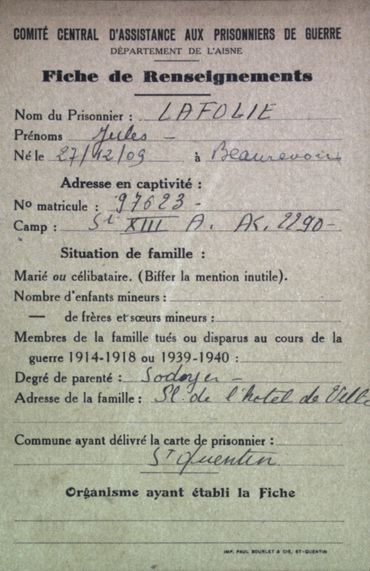 COMITÉ CENTRAL D'ASSISTANCE AUX PRISONNIERS DE GUERRE
DÉPARTEMENT DE L'AISNE
Fiche de Renseignements
Nom du Prisonnier : LAFOLIE
Prénoms Jules -
Né le 27/12/09 à Beaurevoir
Adresse en captivité :
No matricule : 97623 -
Camp : St XIII A. AK. 2290 -
Situation de famille :
Marié ou célibataire. (Biffer la mention inutile).
Nombre d'enfants mineurs :
— de frères et sœurs mineurs :
Membres de la famille tués ou disparus au cours de la
guerre 1914-1918 ou 1939-1940 :
Degré de parenté :
Adresse de la famille : Pl. de l'hotel de Ville
Commune ayant délivré la carte de prisonnier :
St Quentin
Organisme ayant établi la Fiche
IMP. PAUL BOURLET & CIE, ST-QUENTIN